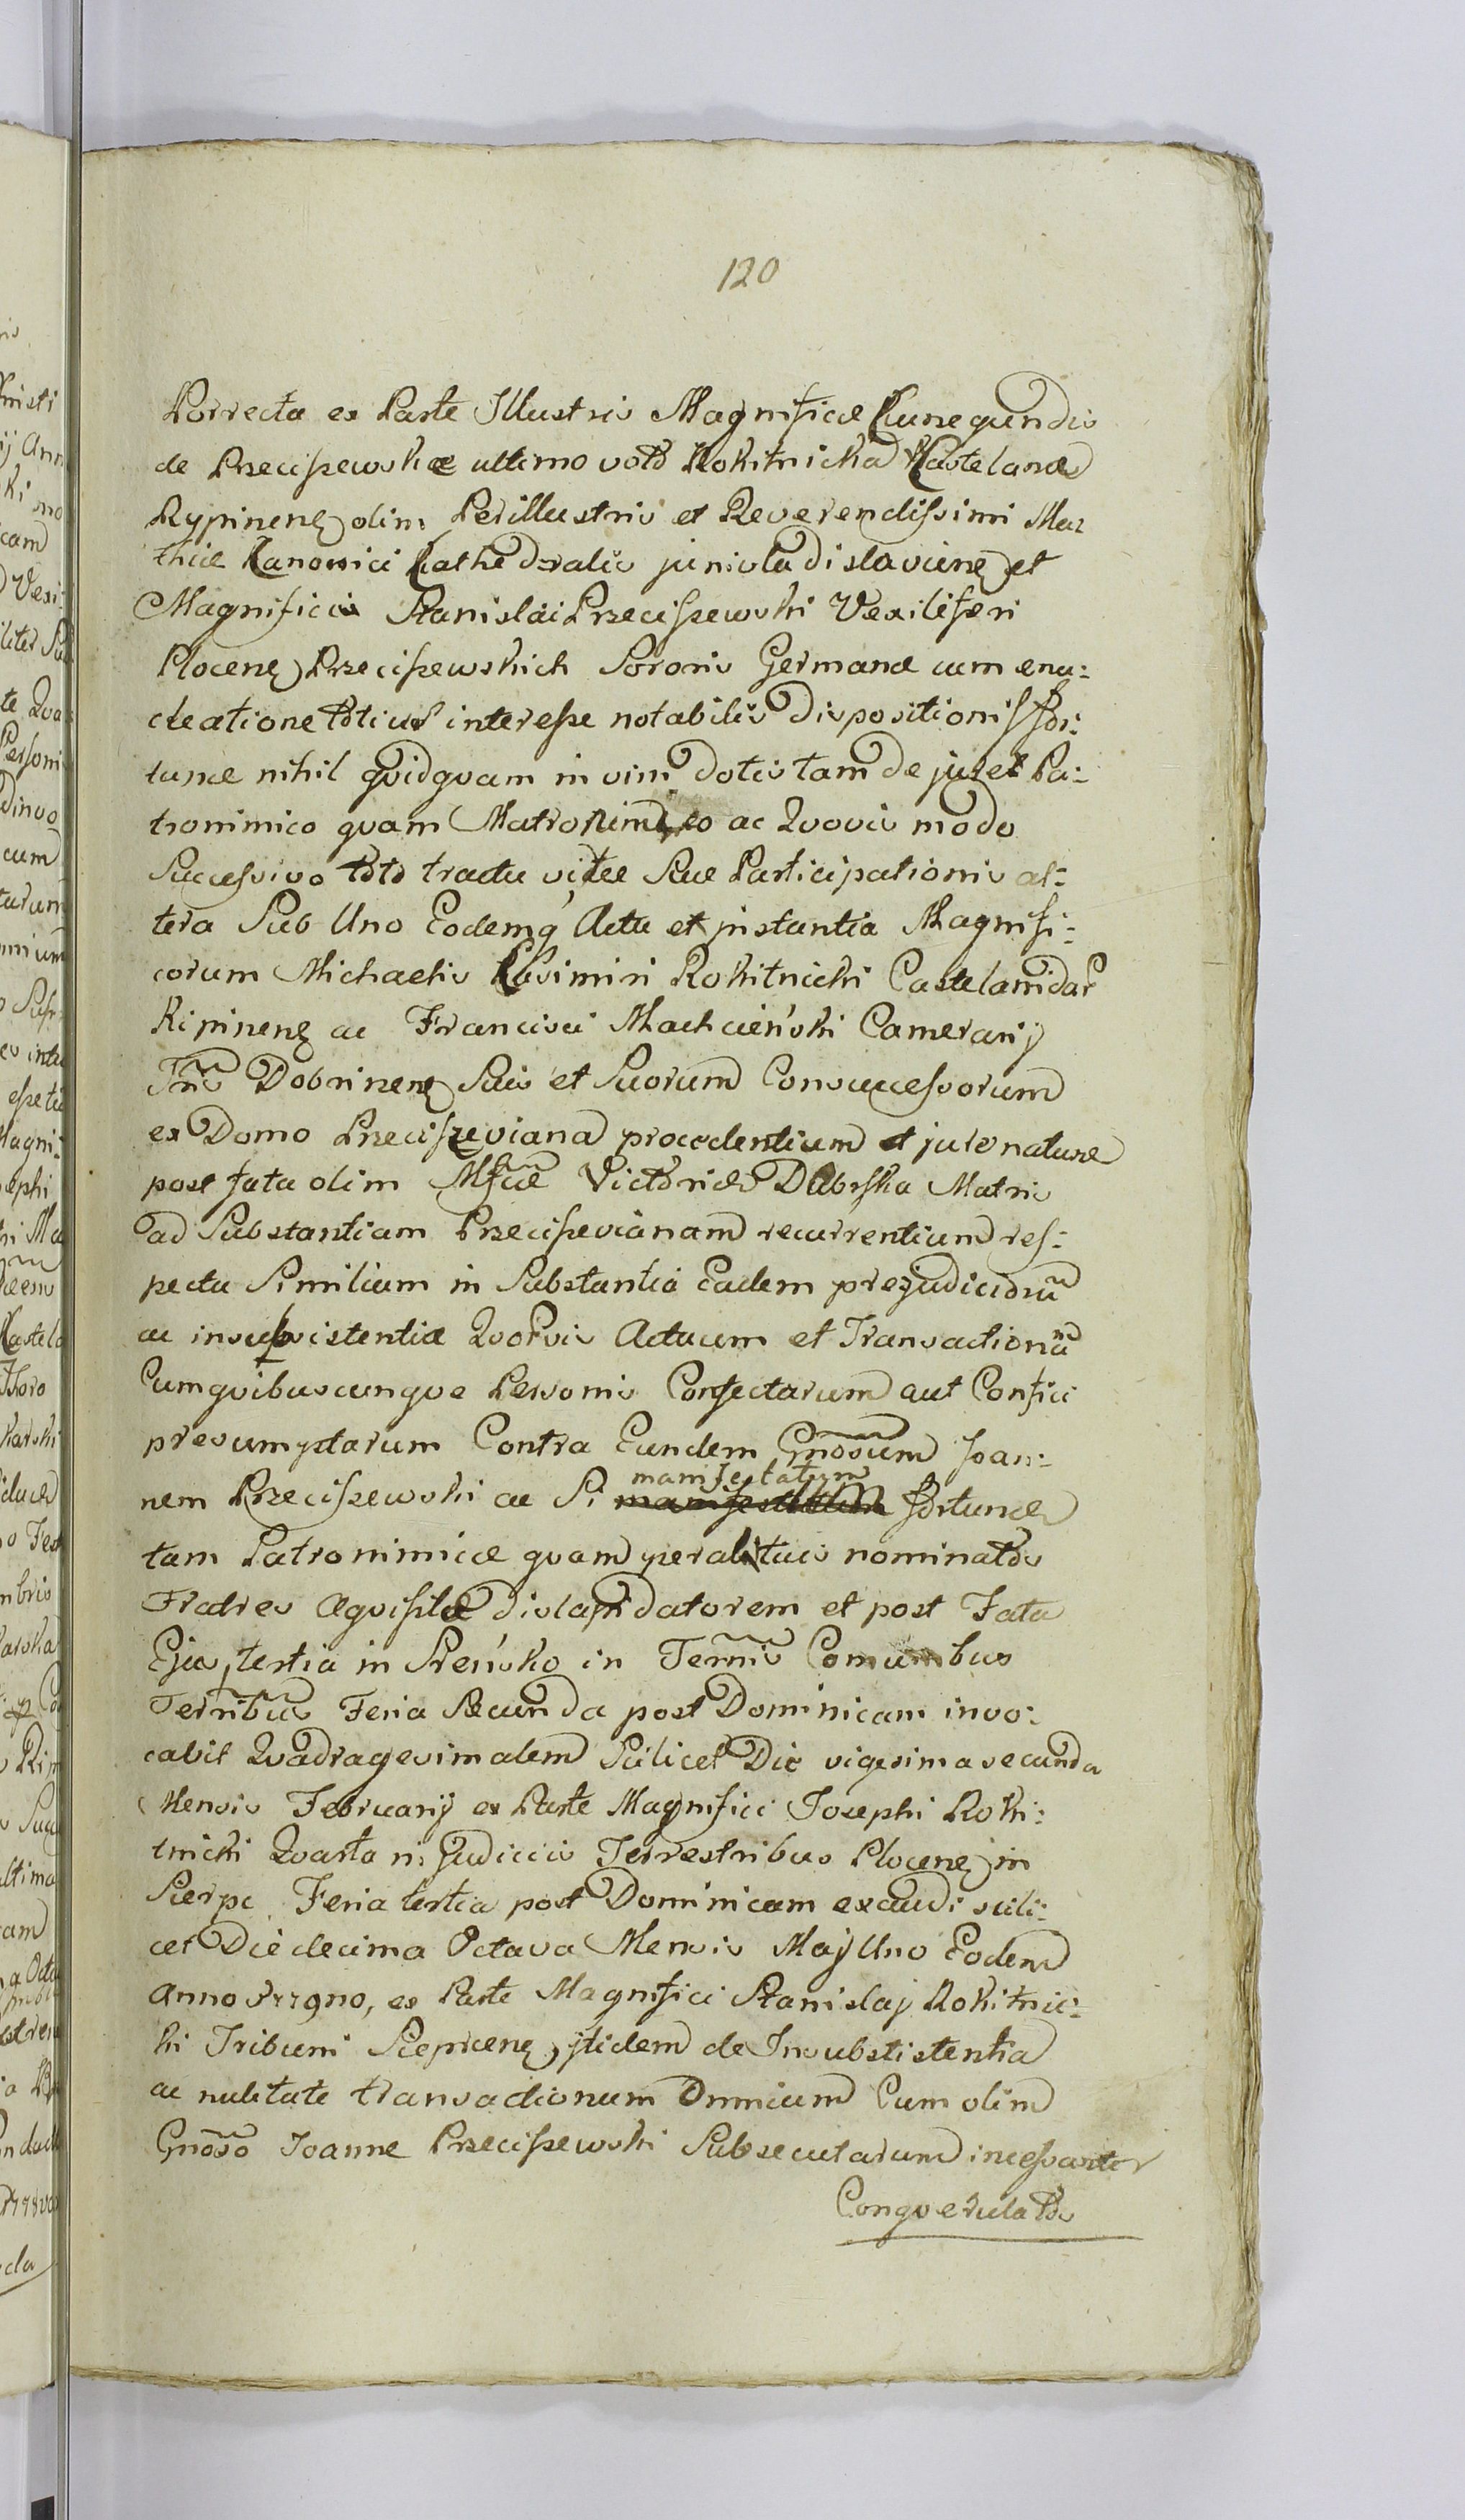 120
Porrecta ex Parte Illustris Magnificæ Cunegundis
de Przeciszewskie ultimo voto Rokitnicka Kastelanæ
Rypinenẹ olim Perillustris et Reverendissimi Mat
thiæ Canonici Cathedralis junivladislaviene et
Magnificis Stanislai Przeciszewski Vexiliferi
Plocenẹ Przeciszewskich Sororis Germanæ cum enu:
cleatione totius interesse notabilis dispositionis for:
tunæ nihil quidquam in vim dotis tam de jure Pa:
tronimico quam Matronimico ac Quovis modo
Successivo toto tractu vitæ Suæ Participationis al:
tera Sub Uno Eodemq Actu et jnstantia Magnifi:
corum Michaelis Casimiri Rokitnicki Castelanidæ
Ripinenẹ ac Francisci Machcieński Camerarij
Tris Dobrinenẹ Suis et Suorum Consuccessorum
ex Domo Przeciszeviana procedentium et jure naturæ
post fata olim Mfcæ Victoriæ Dąbrska Matris
ad Substantiam Przeciszevianam recurrentium res:
pectu Similium in Substantia Eadem prezudiciorũ
ac insubsistentiæ Quorvis Actuum et Transactionũ
Cumquibuscunque Personis Confectarum aut Confici
presumptarum Contra Eundem Gnosum Joan:
nem Przeciszewski ac Si manifestatum fortunæ
tam Patronimicæ quam per abitus nominatos
Fratres Aquisitæ dislapidatorem et post Fata
Ejus, tertia in Sreńsko in Terris Comunibus
Terribus Feria Secunda post Dominicam invo:
cabit Quadragesimalem Scilicet Die vigesima secunda
Mensis Februarij ex Parte Magnifici Josephi Roki:
tnicki Quarta in Judiciis Terrestribus Plocenẹ in
Sierpc Feria tertia post Dominicam exaudi scili:
cet Die decima Octava Mensis Maj Uno Eodem
anno 1779no, ex Parte Magnifici Stanislaj Rokitnic:
ki Tribuni Siepcenẹ, jtidem de Insubstistentia
ac nulitate transactionum Omnium Cum olim
Gnoso Joanne Przeciszewski Subsecutarum incessanter
Conquerulatos